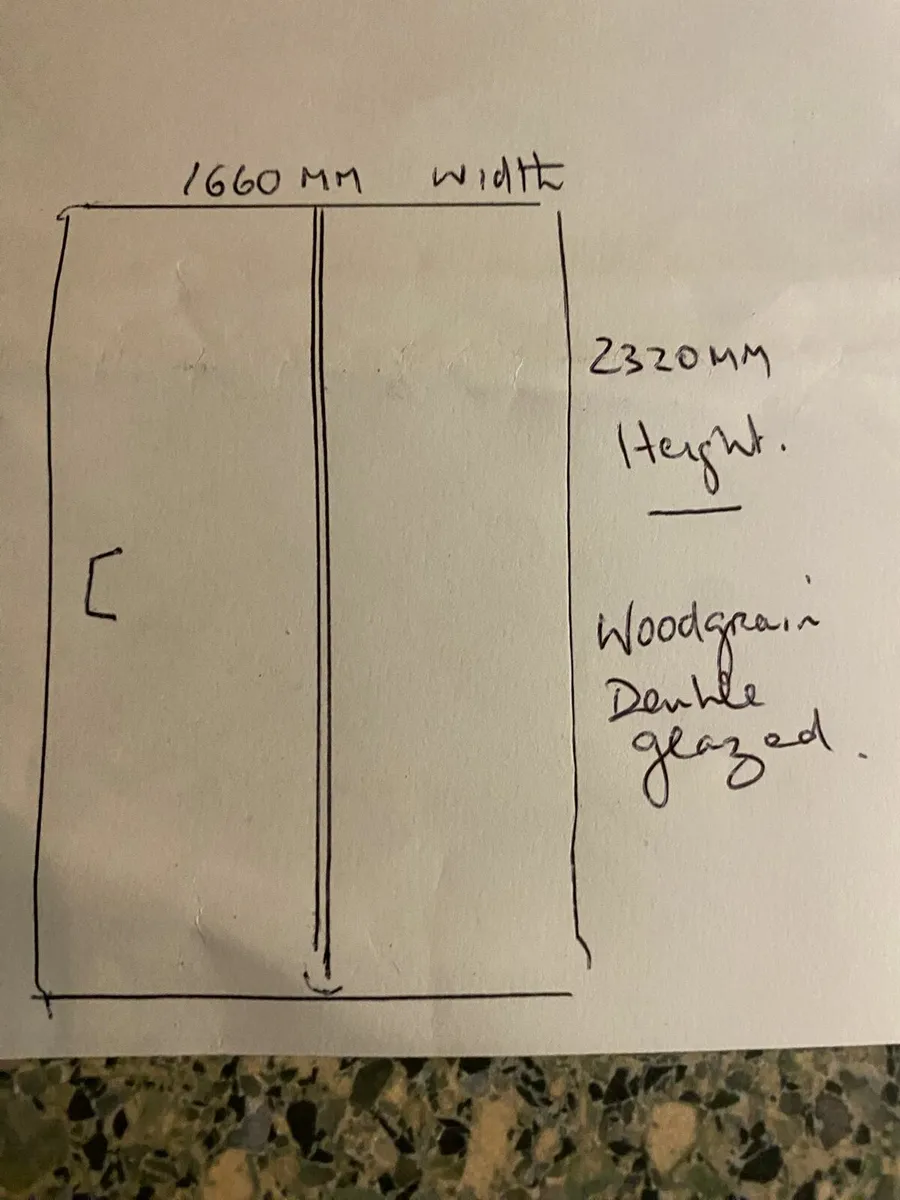 1660 MM Width
2320MM
Height.
Woodgrain
Double
glazed.